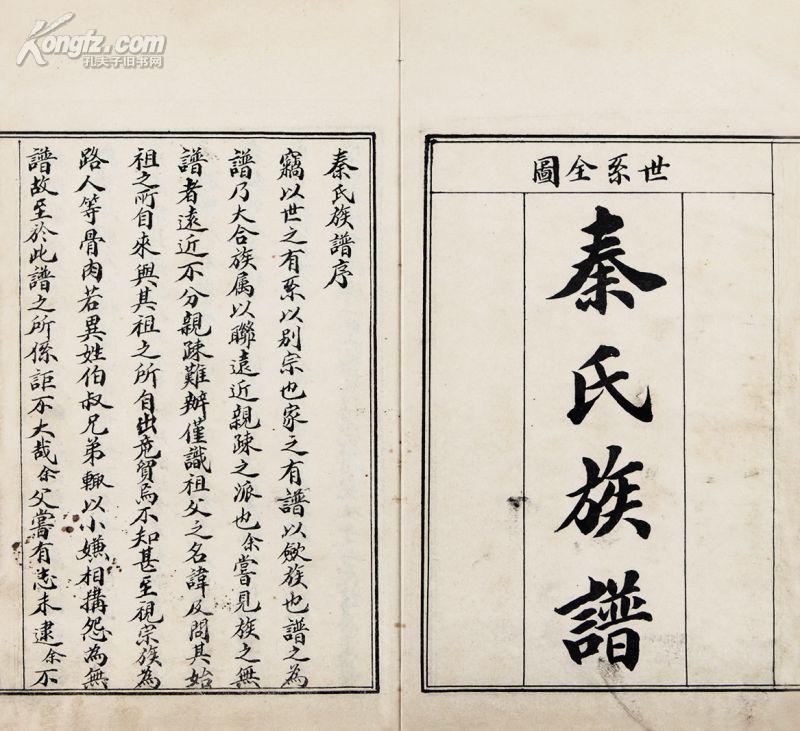 Kongfz.com
孔夫子旧书网
世系全圖
秦氏族譜
秦氏族譜序
竊以世之有系以别宗也家之有譜以歛族也譜之為
譜乃大合族属以聯遠近親疎之派也余嘗見族之無
譜者遠近不分親疎難辦僅識祖父之名諱及問其始
祖之所自來與其祖之所自出竟貿焉不知甚至視宗族為
路人等骨肉若異姓伯叔兄弟輙以小嫌相搆怨為無
譜故至於此譜之所係詎不大哉余父嘗有志未逮余不